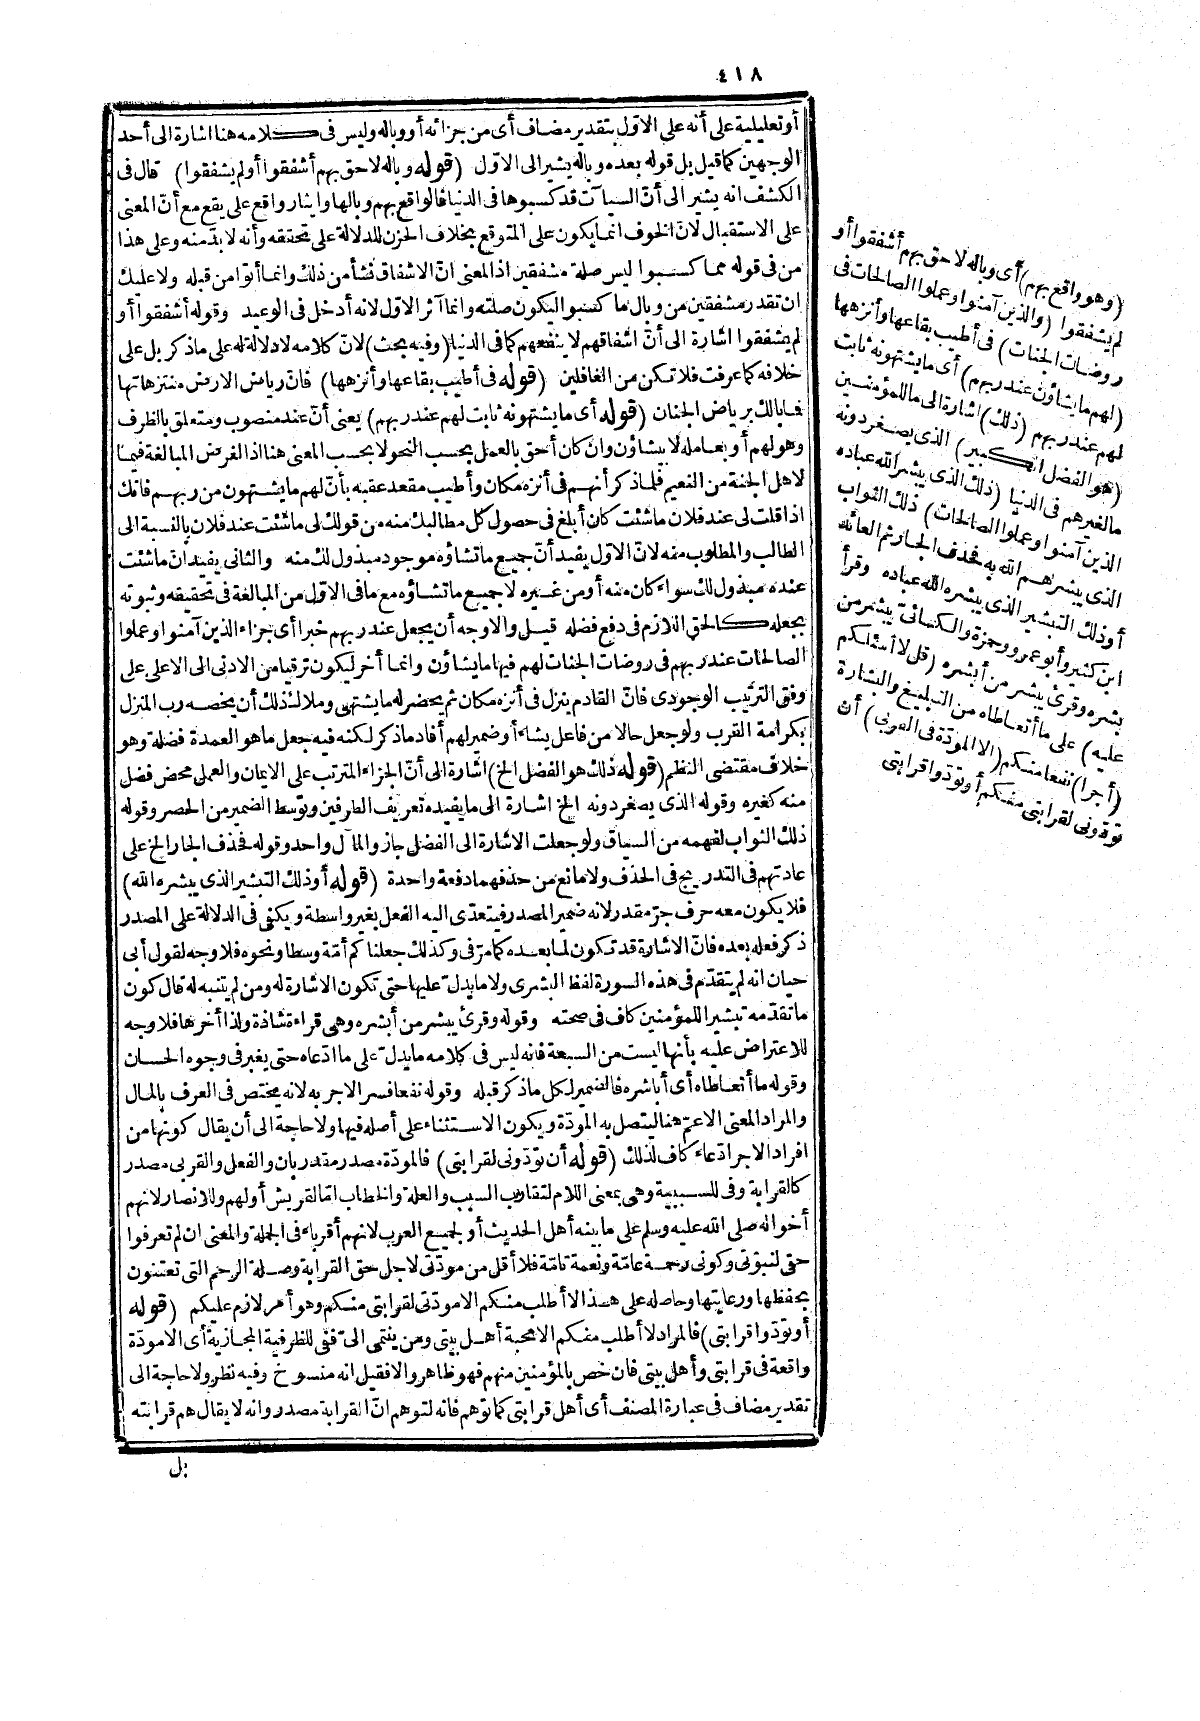 ٤١٨
أو تعليلية على أنه على الاوّل بتقدير مضاف أى من جزائه أو وباله وليس فى كلامه هنا اشارة الى أحد
الوجهين كما قيل بل قوله بعده وباله يشير الى الاوّل (قوله وباله لاحق بهم أشفقوا أو لم يشفقوا) قال فى
الكشف انه يشير الى أنّ السيآت قد كسبوها فى الدنيا فالواقع بهم وبالها وايثار واقع على يقع مع أنّ المعنى
على الاستقبال لانّ الخوف انما يكون على المتوقع بخلاف الحزن للدلالة على تحققه وأنه لا بدّ منه وعلى هذا
من فى قوله مما كسبوا ليس صلة مشفقين اذ المعنى انّ الاشفاق نشأ من ذلك وانما أتوا من قبله ولا عليك
ان تقدر مشفقين من وبال ما كسبوا ليكون صلته وانما آثر الاول لانه أدخل فى الوعيد وقوله أشفقوا أو
لم يشفقوا اشارة الى أنّ اشفاقهم لا ينفعهم كما فى الدنيا (وفيه بحث) لانّ كلامه لا دلالة له على ما ذكر بل على
خلافه كما عرفت فلا تكن من الغافلين (قوله فى أطيب بقاعها وأنزهها) فانّ رياض الارض منتزهاتها
فما بالك برياض الجنان (قوله أى ما يشتهونه ثابت لهم عند ربهم) يعنى أنّ عند منصوب ومتعلق بالظرف
وهو لهم أو بعامله لا بيشاؤن وان كان أحق بالعمل بحسب النحو لا بحسب المعنى هنا اذ الغرض المبالغة فيما
لاهل الجنة من النعيم فلما ذكر أنهم فى أنزه مكان وأطيب مقعد عقبه بأنّ لهم ما يشتهون من ربهم فانك
اذا قلت لى عند فلان ما شئت كان أبلغ فى حصول كل مطالبك منه من قولك لى ما شئت عند فلان بالنسبة الى
الطالب والمطلوب منه لانّ الاوّل يفيد أنّ جميع ما تشاؤه موجود مبذول لك منه والثانى يفيد انّ ما شئت
عنده مبذول لك سواء كان منه أو من غيره لا جميع ما تشاؤه مع ما فى الاوّل من المبالغة فى تحقيقه وثبوته
بجعله كالحق اللازم فى دفع فضله قيل والاوجه أن يجعل عند ربهم خبرا أى جزاء الذين آمنوا وعملوا
الصالحات عند ربهم فى روضات الجنات لهم فيها ما يشاؤن وانما أخر ليكون ترقيا من الادنى الى الاعلى على
وفق الترتيب الوجودى فانّ القادم ينزل فى أنزه مكان ثم يحضر له ما يشتهى وملاك ذلك أن يخصه رب المنزل
بكرامة القرب ولو جعل حالا من فاعل يشاء أو ضمير لهم أفاد ما ذكر لكنه فيه جعل ما هو العمدة فضلة وهو
خلاف مقتضى النظم (قوله ذلك هو الفضل الخ) اشارة الى أنّ الجزاء المترتب على الايمان والعمل محض فضل
منه كغيره وقوله الذى يصغر دونه الخ اشارة الى ما يفيده تعريف الطرفين وتوسط الضمير من الحصر وقوله
ذلك الثواب لفهمه من السياق ولو جعلت الاشارة الى الفضل جاز والمآل واحد وقوله فحذف الجار الخ على
عادتهم فى التدريج فى الحذف ولا مانع من حذفهما دفعة واحدة (قوله أو ذلك التبشير الذى يبشره الله)
فلا يكون معه حرف جرّ مقدر لانه ضمير المصدر فيتعدّى اليه الفعل بغير واسطة ويكفى فى الدلالة على المصدر
ذكر فعله بعده فانّ الاشارة قد تكون لما بعده كما مرّ فى وكذلك جعلناكم أمّة وسطا ونحوه فلا وجه لقول أبى
حيان انه لم يتقدّم فى هذه السورة لفظ البشرى ولا ما يدلّ عليها حتى تكون الاشارة له ومن لم يتنبه له قال كون
ما تقدّمه تبشيرا للمؤمنين كاف فى صحته وقوله وقرئ يبشر من أبشره وهى قراءة شاذة ولذا أخرها فلا وجه
للاعتراض عليه بأنها ليست من السبعة فانه ليس فى كلامه ما يدلّ على ما ادّعاه حتى يغبر فى وجوه الحسان
وقوله ما أتعاطاه أى أباشره فالضمير لكل ما ذكر قبله وقوله نفعا فسر الاجر به لانه يختص فى العرف بالمال
والمراد المعنى الاعمّ هنا ليتصل به المودّة ويكون الاستثناء على أصله فيها ولا حاجة الى أن يقال كونها من
افراد الاجر ادّعاء كاف لذلك (قوله أن تودّونى لقرابتى) فالمودّة مصدر مقدر بان والفعل والقربى مصدر
كالقرابة وفى للسببية وهى بمعنى اللام لتقارب السبب والعلة والخطاب امّا لقريش أو لهم وللانصار لانهم
أخواله صلى الله عليه وسلم على ما بينه أهل الحديث أو لجميع العرب لانهم أقرباء فى الجملة والمعنى ان لم تعرفوا
حقى لنبوّتى وكونى رحمة عامّة ونعمة تامّة فلا أقل من مودّتى لاجل حق القرابة وصلة الرحم التى تعتنون
بحفظها ورعايتها وحاصله على هذا لا أطلب منكم الا مودّتى لقرابتى منكم وهو أمر لازم عليكم (قوله
أو تودّوا قرابتى) فالمراد لا أطلب منكم الا محبة أهل بيتى ومن ينتمى الىّ ففى للظرفية المجازية أى الا مودّة
واقعة فى قرابتى وأهل بيتى فان خص بالمؤمنين منهم فهو ظاهر والا فقيل انه منسوخ وفيه نظر ولا حاجة الى
تقدير مضاف فى عبارة المصنف أى أهل قرابتى كما توهم فانه لتوهم انّ القرابة مصدر وانه لا يقال هم قرابته
بل
(وهو واقع بهم) أى وباله لاحق بهم أشفقوا أو
لم يشفقوا (والذين آمنوا وعملوا الصالحات فى
روضات الجنات) فى أطيب بقاعها وأنزهها
(لهم ما يشاؤن عند ربهم) أى ما يشتهونه ثابت
لهم عند ربهم (ذلك) اشارة الى ما للمؤمنين
(هو الفضل الكبير) الذى يصغر دونه
ما لغيرهم فى الدنيا (ذلك الذى يبشر الله عباده
الذين آمنوا وعملوا الصالحات) ذلك الثواب
الذى يبشرهم الله به فحذف الجار ثم العائد
أو ذلك التبشير الذى يبشره الله عباده وقرأ
ابن كثير وأبو عمرو وحمزة والكسائى يبشر من
بشره وقرئ يبشر من أبشره (قل لا أسئلكم
عليه) على ما أتعاطاه من التبليغ والبشارة
(أجرا) نفعا منكم (الا المودّة فى القربى) أن
تودّونى لقرابتى منكم أو تودّوا قرابتى